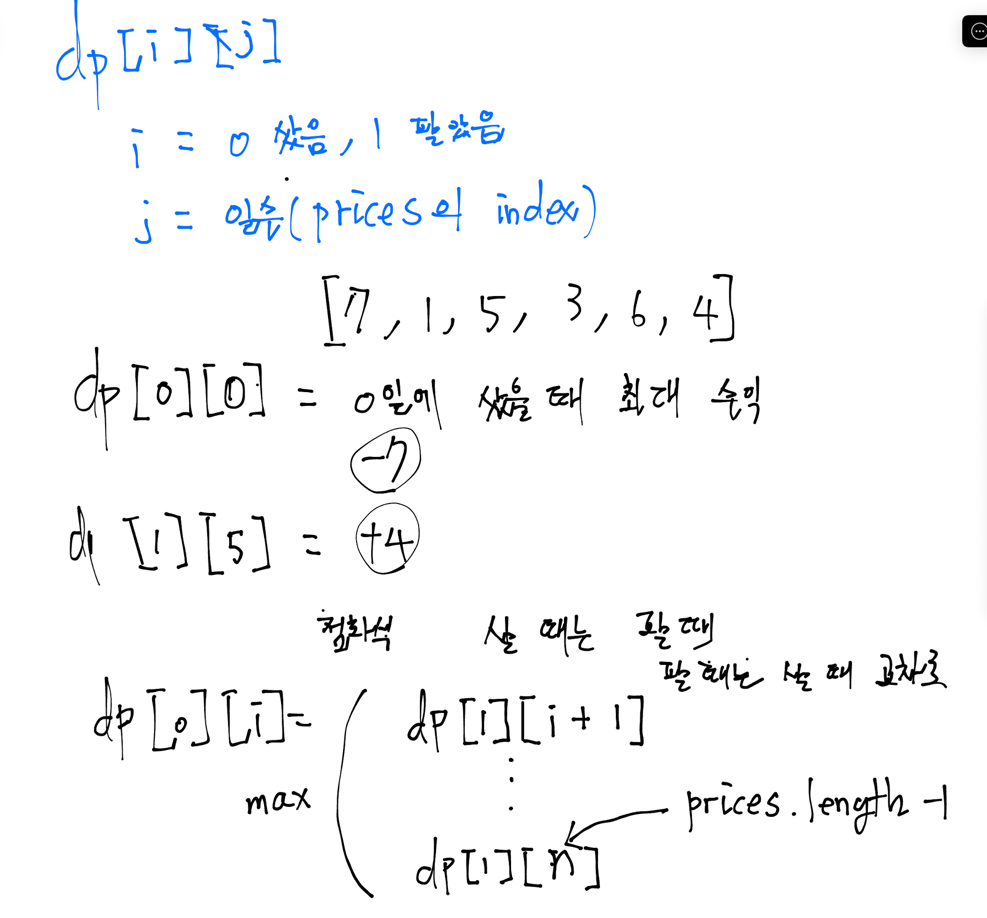 dp[i][j]
i = 0 샀음, 1 팔았음
j = 일수(prices의 index)
[7, 1, 5, 3, 6, 4]
dp[0][0] = 0일에 샀을 때 최대 수익
-7
dp [1][5] = +4
점화식 살 때는 팔 때
팔 때는 살 때 교차로
dp[0][i] = max ( dp[1][i+1]
⋮
dp[1][n] ← prices.length -1